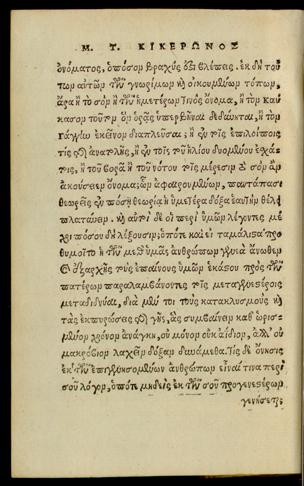 Μ. Τ. ΚΙΚΕΡΩΝΟΣ
ὀνόματος, ὁπόσον βραχύς ἐστι βλέπεις. ἐκ δὴ τού
των αὐτῶν τῶν γνωρίμων καὶ οἰκουμένων τόπων,
ἆρα ἢ τὸ σὸν ἢ τῶν ἡμετέρων τινὸς ὄνομα, ἢ τὸν καύ
κασον τοῦτον ὃν ὁρᾷς ὑπερβῆναι δεδύνηται, ἢ τὸν
γάγγην ἐκεῖνον διαπλεῦσαι; ἢ ἐν τοῖς ἐπιλοίποις
τίς τῆς ἀνατολῆς, ἢ ἐν τοῖς τοῦ ἡλίου δυομένου ἐσχά
τοις, ἢ τοῦ βορᾶ ἢ τοῦ νότου τοῖς μέρεσιν τὸ σὸν
ἀκούσειεν ὄνομα; ὧν ἀφαιρουμένων, πανταπᾶσι
θεωρεῖς ἐν πόσῃ θεωρίᾳ ἡ ὑμετέρα δόξα ἑαυτὴν θέλει
πλατύνειν. καὶ αὐτοὶ δὲ οἱ περὶ ὑμῶν λέγοντες μέ
χρι πόσου δὴ λέξουσιν; ὁπότε καὶ εἰ ταμάλιστα προ
θυμοῖτο ἡ τῶν μεθ' ὑμᾶς ἀνθρώπων γενεὰ ἄνωθεν
καὶ ἐξ ἀρχῆς τοὺς ἐπαίνους ὑμῶν ἑκάστου πρὸς τῶν
πατέρων παραλαμβάνοντες τοῖς μεταγενεστέροις
μεταδιδόναι, διὰ μέν τοι τοὺς κατακλυσμοὺς καὶ
τὰς ἐκπυρώσεις τῆς γῆς, ἃς συμβαίνειν καθ' ὡρισ
μένον χρόνον ἀνάγκη, οὐ μόνον οὐκ ἀΐδιον, ἀλλ' οὐ
μακρόβιον λαχεῖν δόξαν δυνάμεθα. τίς δὲ ὄνησις
ἐκ τῶν ἐπιγενησομένων ἀνθρώπων εἶναί τινα περὶ
σοῦ λόγον, ὁπότε μηδεὶς ἐκ τῶν σοῦ προγενεστέρων